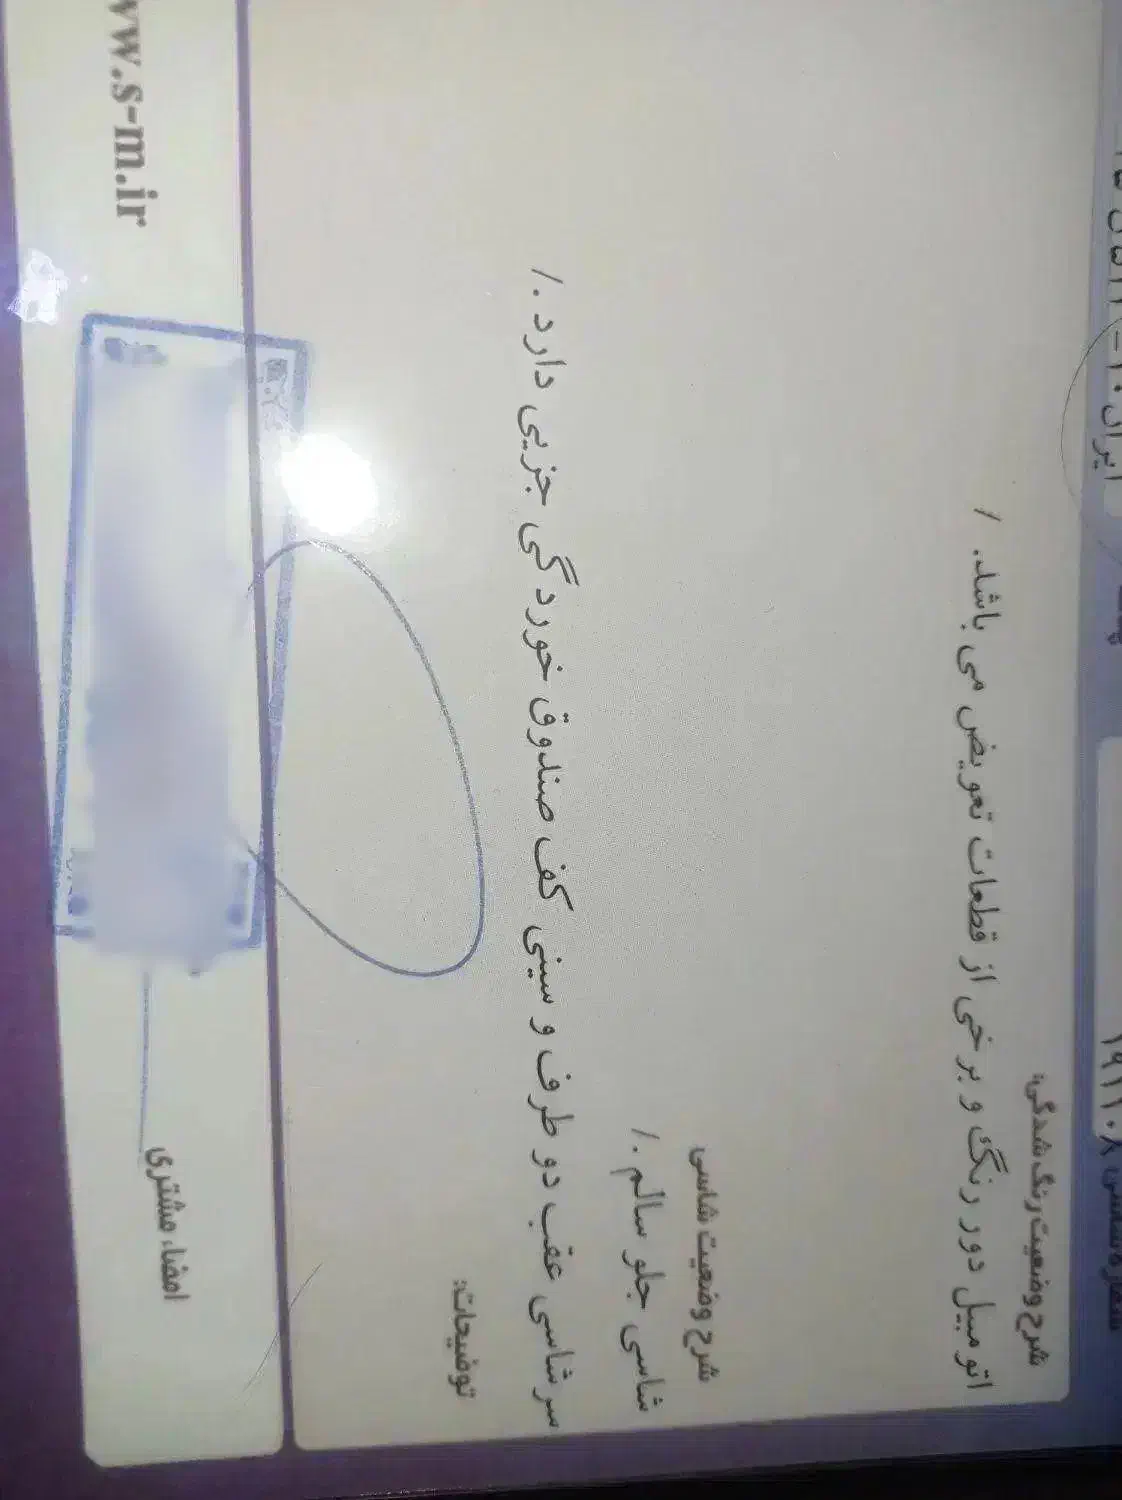 ایران ۲۰
۱۹۱۱۰۸
شرح وضعیت رنگ شدگی:
اتومبیل دور رنگ و برخی از قطعات تعویض می باشد. /
شرح وضعیت شاسی
شاسی جلو سالم ./
سرشاسی عقب دو طرف و سینی کف صندوق خوردگی جزیی دارد ./
توضیحات:
امضاء مشتری
ww.s-m.ir